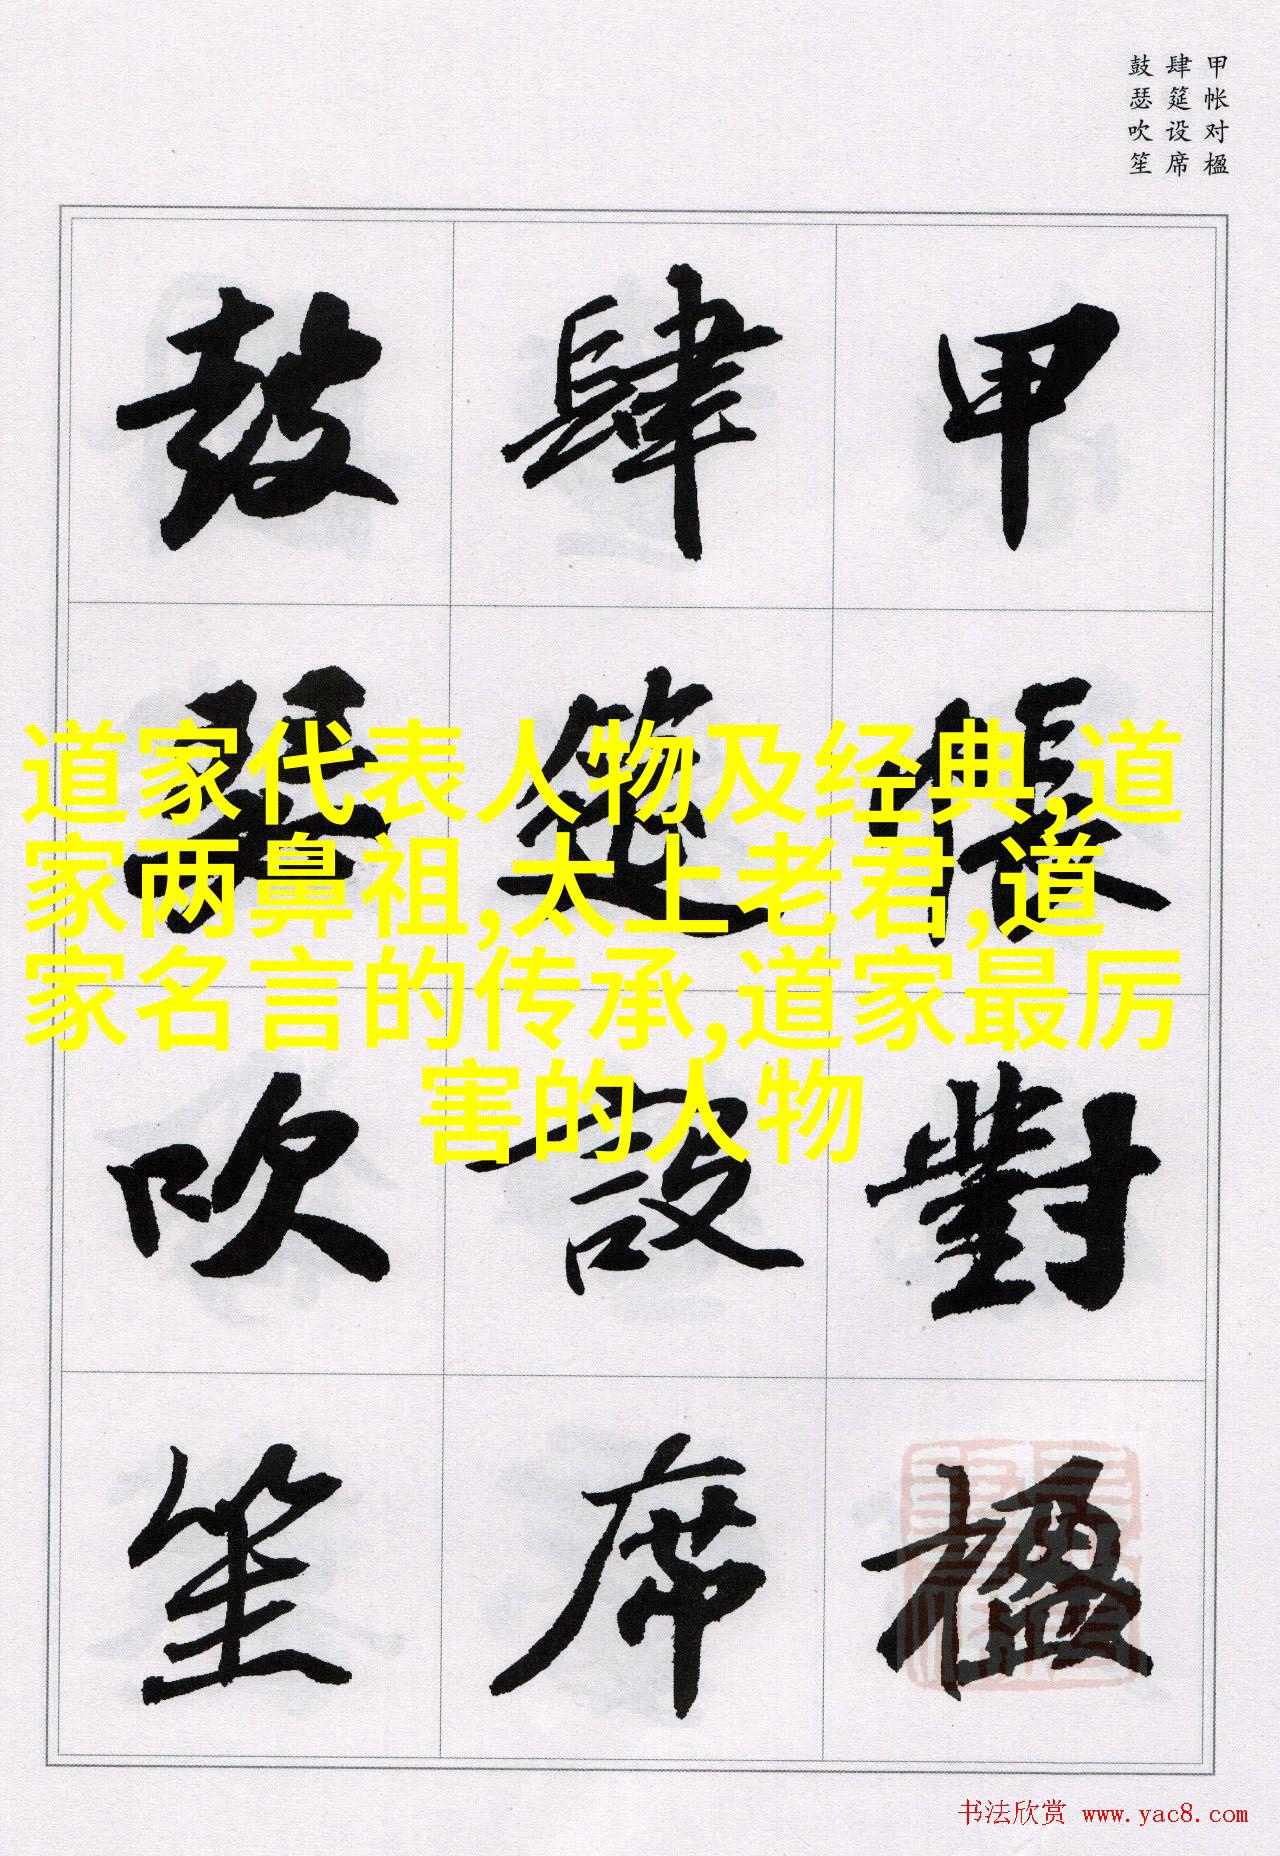 甲帐对楹
肆筵设席
鼓瑟吹笙
甲帳對楹
肆筵設席
鼓瑟吹笙
道家代表人物及经典,道
家两鼻祖,太上老君,道
家名言的传承,道家最厉
害的人物
书法欣赏 www.yac8.com